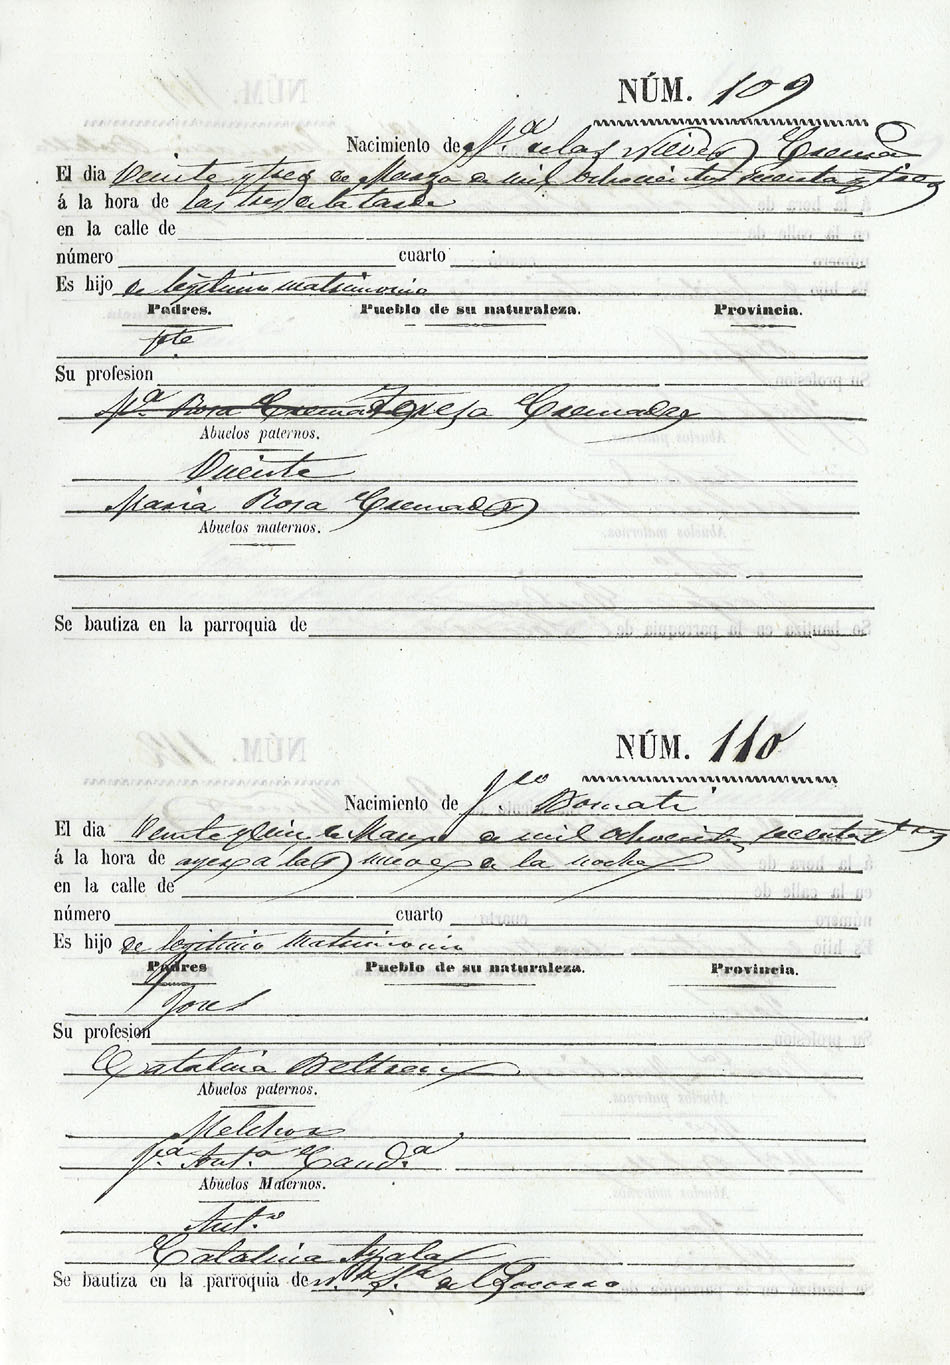 NÚM. 109
Nacimiento de Mª. de las Nieves Cremad
El dia Veinte y tres de Marzo de mil ochocientos secenta y tres
á la hora de las tres de la tarde
en la calle de
número cuarto
Es hijo de legitimo matrimonio
Padres. Pueblo de su naturaleza. Provincia.
Jte
Su profesion
Mª. Rosa Cremad Teresa Cremades
Abuelos paternos.
Vicente
Maria Rosa Cremades
Abuelos maternos.
Se bautiza en la parroquia de
NÚM. 110
Nacimiento de Jco Bernati
El dia Veinte y de Marzo de mil ochocientos secenta y tres
á la hora de ayer a las nueve de la noche
en la calle de
número cuarto
Es hijo de legitimo matrimonio
Padres Pueblo de su naturaleza. Provincia.
José
Su profesion
Catalina Beltran
Abuelos paternos.
Melchor
Antª. Candª
Abuelos Maternos.
Antº
Catalina Ayala
Se bautiza en la parroquia de Nª. Sª. del Socorro